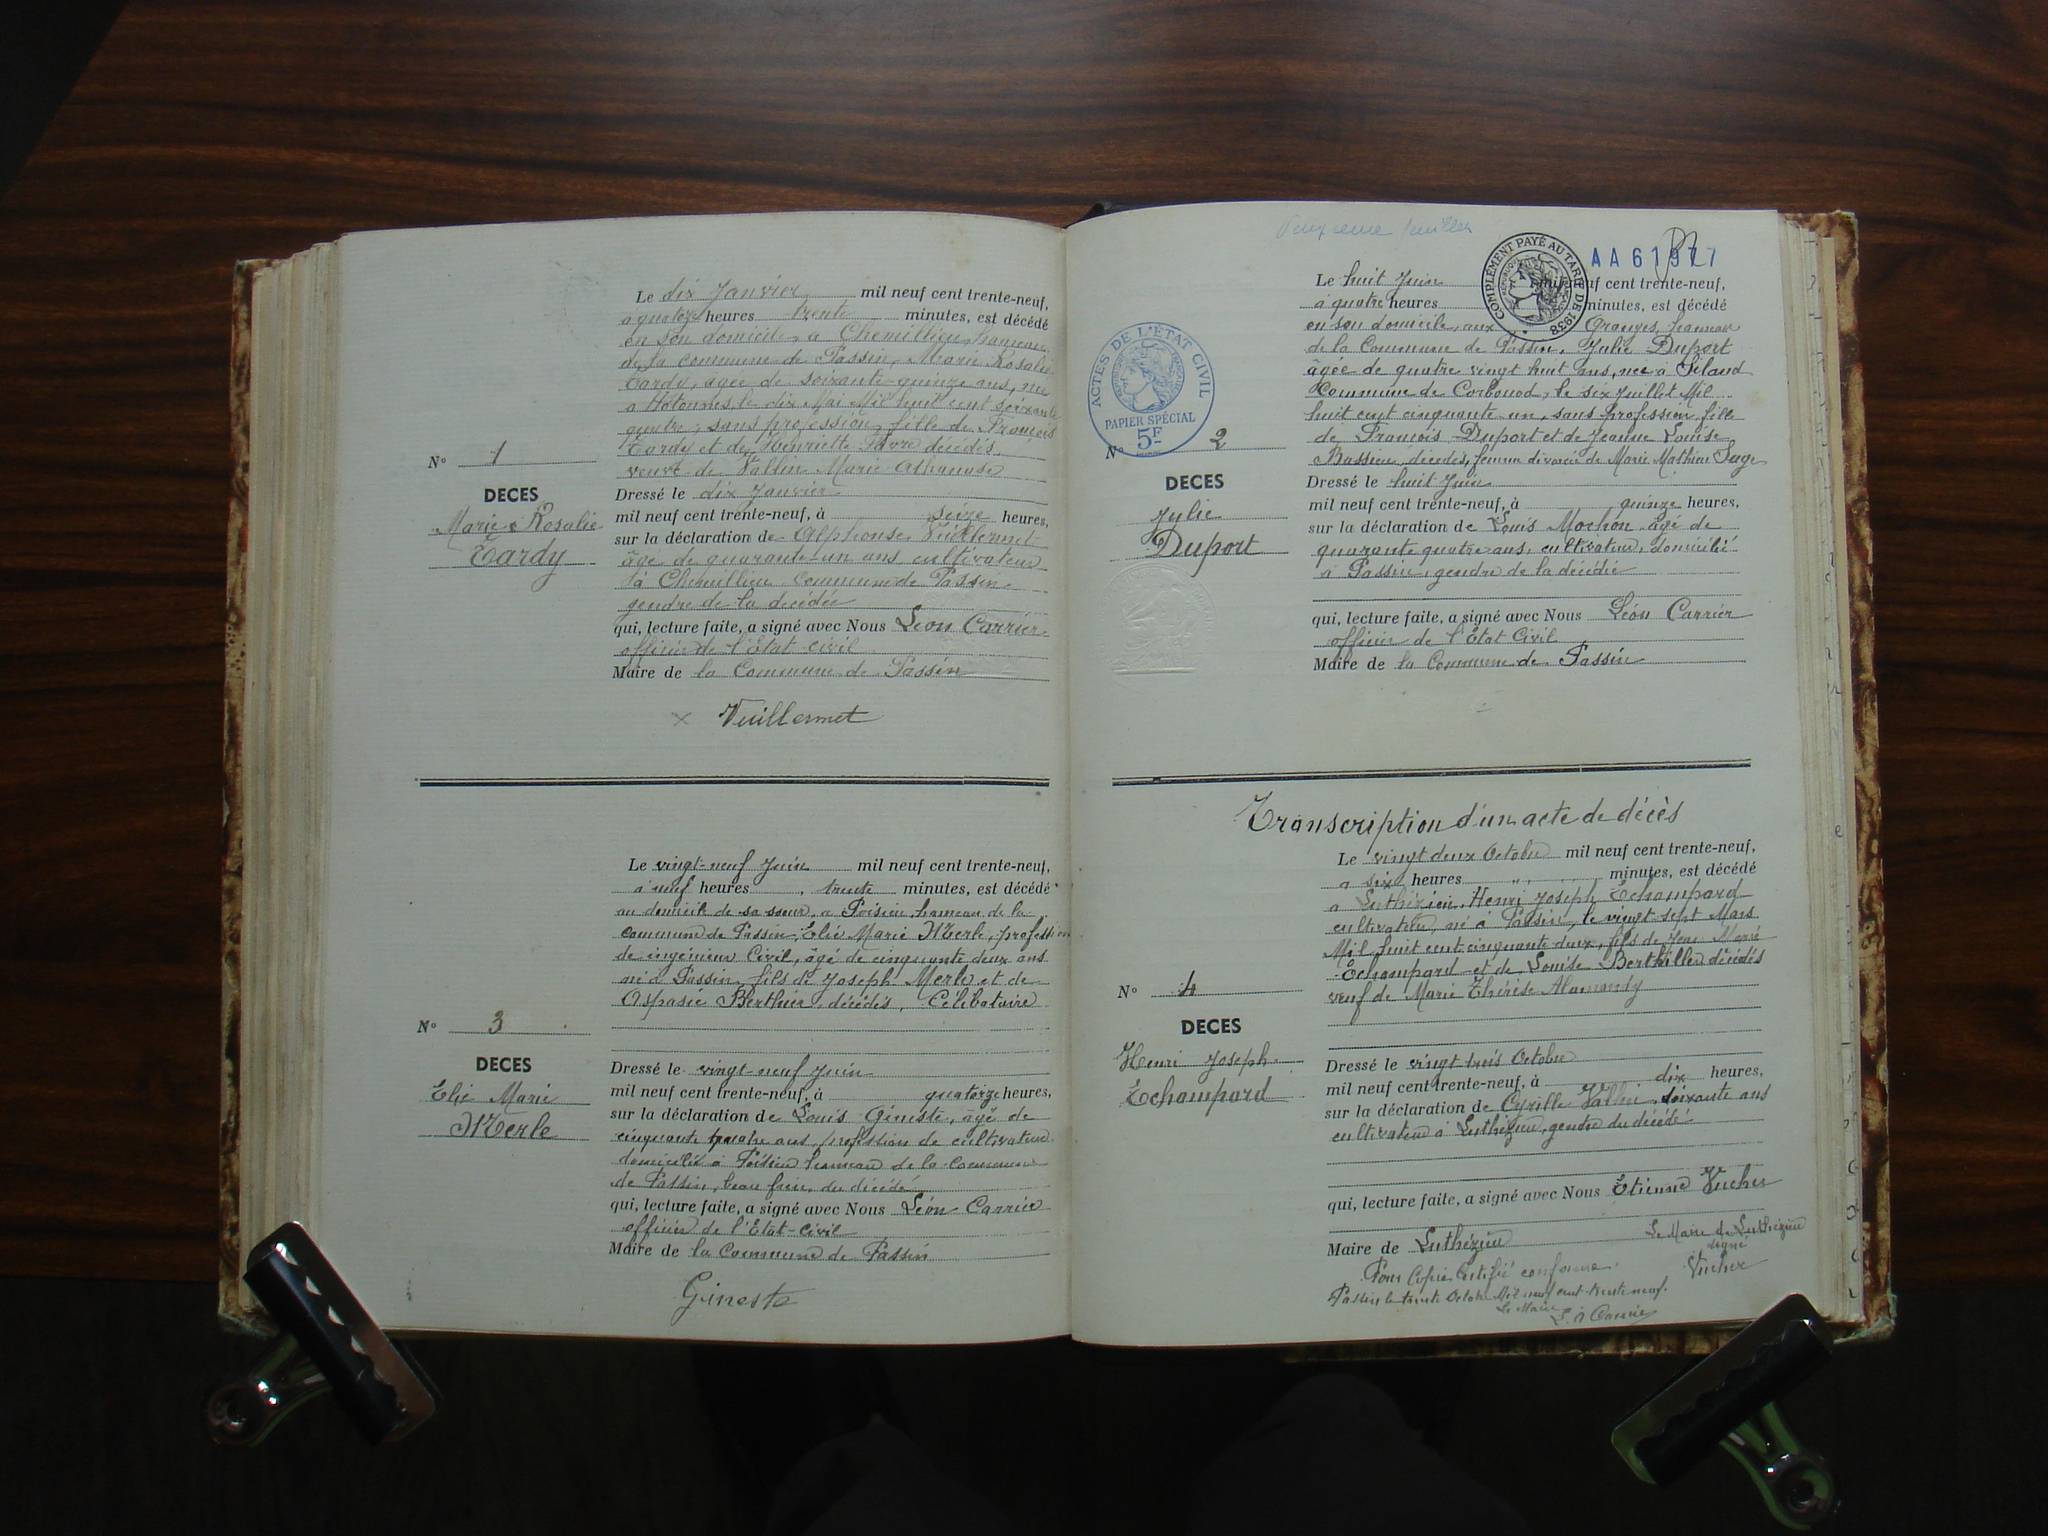 Le dix Janvier mil neuf cent trente-neuf,
à quatorze heures trente minutes, est décédé
en son domicile, à Chemillieu, hameau
de la commune de Passin, Marie Rosalie
Tardy, âgée de soixante-quinze ans, née
à Hotonnes, le dix Mai Mil huit cent soixante
quatre, sans profession, fille de François
Tardy et de Henriette décédés,
veuve de Vallin Marie Athanase
N° 1
DECES
Marie Rosalie
Tardy
Dressé le dix Janvier
mil neuf cent trente-neuf, à seize heures,
sur la déclaration de Alphonse Vuillermet
âgé de quarante-un ans, cultivateur
à Chemillieu commune de Passin
gendre de la décédée
qui, lecture faite, a signé avec Nous Léon Carrier
officier de l'Etat civil
Maire de la Commune de Passin
Vuillermet
Le vingt-neuf Juin mil neuf cent trente-neuf,
à neuf heures, trente minutes, est décédé
au domicile de sa soeur, à Poisieu, hameau de la
commune de Passin, Elie Marie Merle, profession
de ingénieur Civil, âgé de cinquante deux ans
né à Passin, fils de Joseph Merle et de
Aspasie Berthier, décédés, Célibataire
N° 3
DECES
Elie Marie
Merle
Dressé le vingt-neuf Juin
mil neuf cent trente-neuf, à quatorze heures,
sur la déclaration de Louis Gineste, âgé de
cinquante quatre ans, profession de cultivateur
domicilié à Poisieu hameau de la commune
de Passin, beau frère du décédé
qui, lecture faite, a signé avec Nous Léon Carrier
officier de l'Etat-Civil
Maire de la Commune de Passin
Gineste
Deuxième feuillet
COMPLÉMENT PAYÉ AU TARIF DE 1938
AA 61977
Le huit Juin mil neuf cent trente-neuf,
à quatre heures minutes, est décédé
en son domicile, aux Granges, hameau
de la Commune de Passin, Julie Duport
âgée de quatre vingt huit ans, née à Siland
Commune de Corbonod, le six Juillet Mil
huit cent cinquante un, sans profession, fille
de François Duport et de Jeanne Louise
Bassieu, décédés, femme divorcée de Marie Mathieu Sage
ACTES DE L'ÉTAT CIVIL
PAPIER SPÉCIAL
5F
N° 2
DECES
Julie
Duport
Dressé le huit Juin
mil neuf cent trente-neuf, à quinze heures,
sur la déclaration de Louis Mochon, âgé de
quarante quatre ans, cultivateur, domicilié
à Passin, gendre de la décédée
qui, lecture faite, a signé avec Nous Léon Carrier
officier de l'Etat Civil
Maire de la Commune de Passin
Transcription d'un acte de décès
Le vingt deux Octobre mil neuf cent trente-neuf,
à six heures minutes, est décédé
à Luthézieu, Henri Joseph Echampard
cultivateur, né à Passin, le vingt-sept Mars
Mil huit cent cinquante deux, fils de Jean Marie
Echampard et de Louise Berthiller décédés
veuf de Marie Thérèse Alamondy
N° 4
DECES
Henri Joseph
Echampard
Dressé le vingt trois Octobre
mil neuf cent trente-neuf, à dix heures,
sur la déclaration de Cyrille Vallin, soixante ans
cultivateur à Luthézieu, gendre du décédé
qui, lecture faite, a signé avec Nous Etienne Vucher
Maire de Luthézieu
Le Maire de Luthézieu
signé
Vucher
Pour Copie Certifié conforme
Passin le trente Octobre Mil neuf cent-trente neuf.
Le Maire
L. Carrier